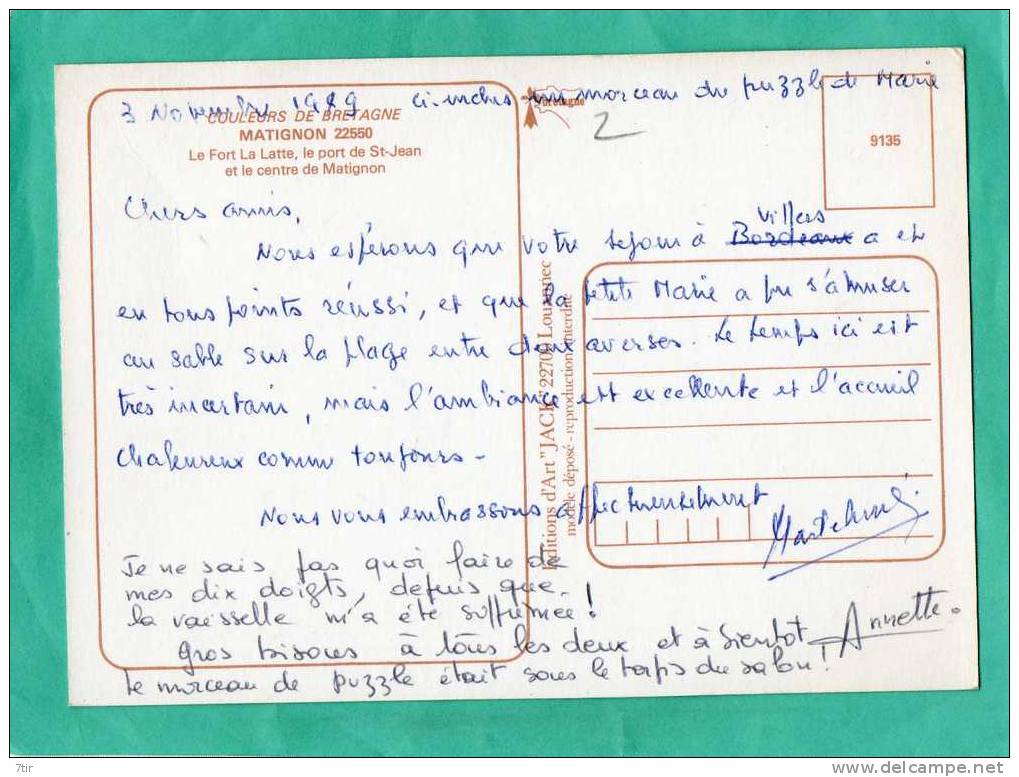 3 Novembre 1989 ci-inclus un morceau du puzzle de Marie
COULEURS DE BRETAGNE
MATIGNON 22550
Le Fort La Latte, le port de St-Jean
et le centre de Matignon
bretagne
2
9135
Chers amis,
Villers
Nous espérons que votre séjour à Bordeaux a été
en tous points réussi, et que la petite Marie a pu s'amuser
au sable sur la plage entre deux averses. Le temps ici est
très incertain, mais l'ambiance est excellente et l'accueil
chaleureux comme toujours -
Nous vous embrassons affectueusement
Editions d'Art "JACK" 22700 Louannec
modèle déposé - reproduction interdite
Je ne sais pas quoi faire de
mes dix doigts, depuis que
la vaisselle m'a été supprimée !
Gros bisous à tous les deux et à bientôt Annette.
Le morceau de puzzle était sous le tapis du salon !
7tir
www.delcampe.net